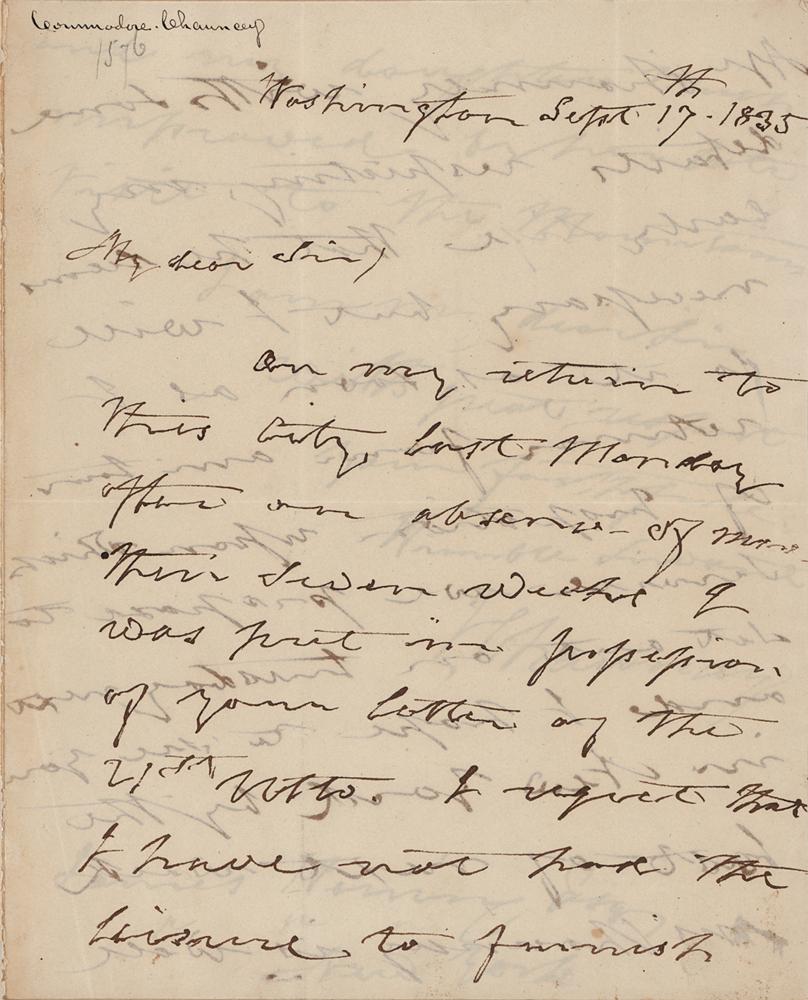 Commodore Chauncey
1576
Washington Sept 17th. 1835
My dear Sir,
On my return to
this City, last Monday
after an absence of more
then Seven Weeks I
was put in possession
of your letter of the
21st Ulto. I regret that
I have not had the
leisure to furnish